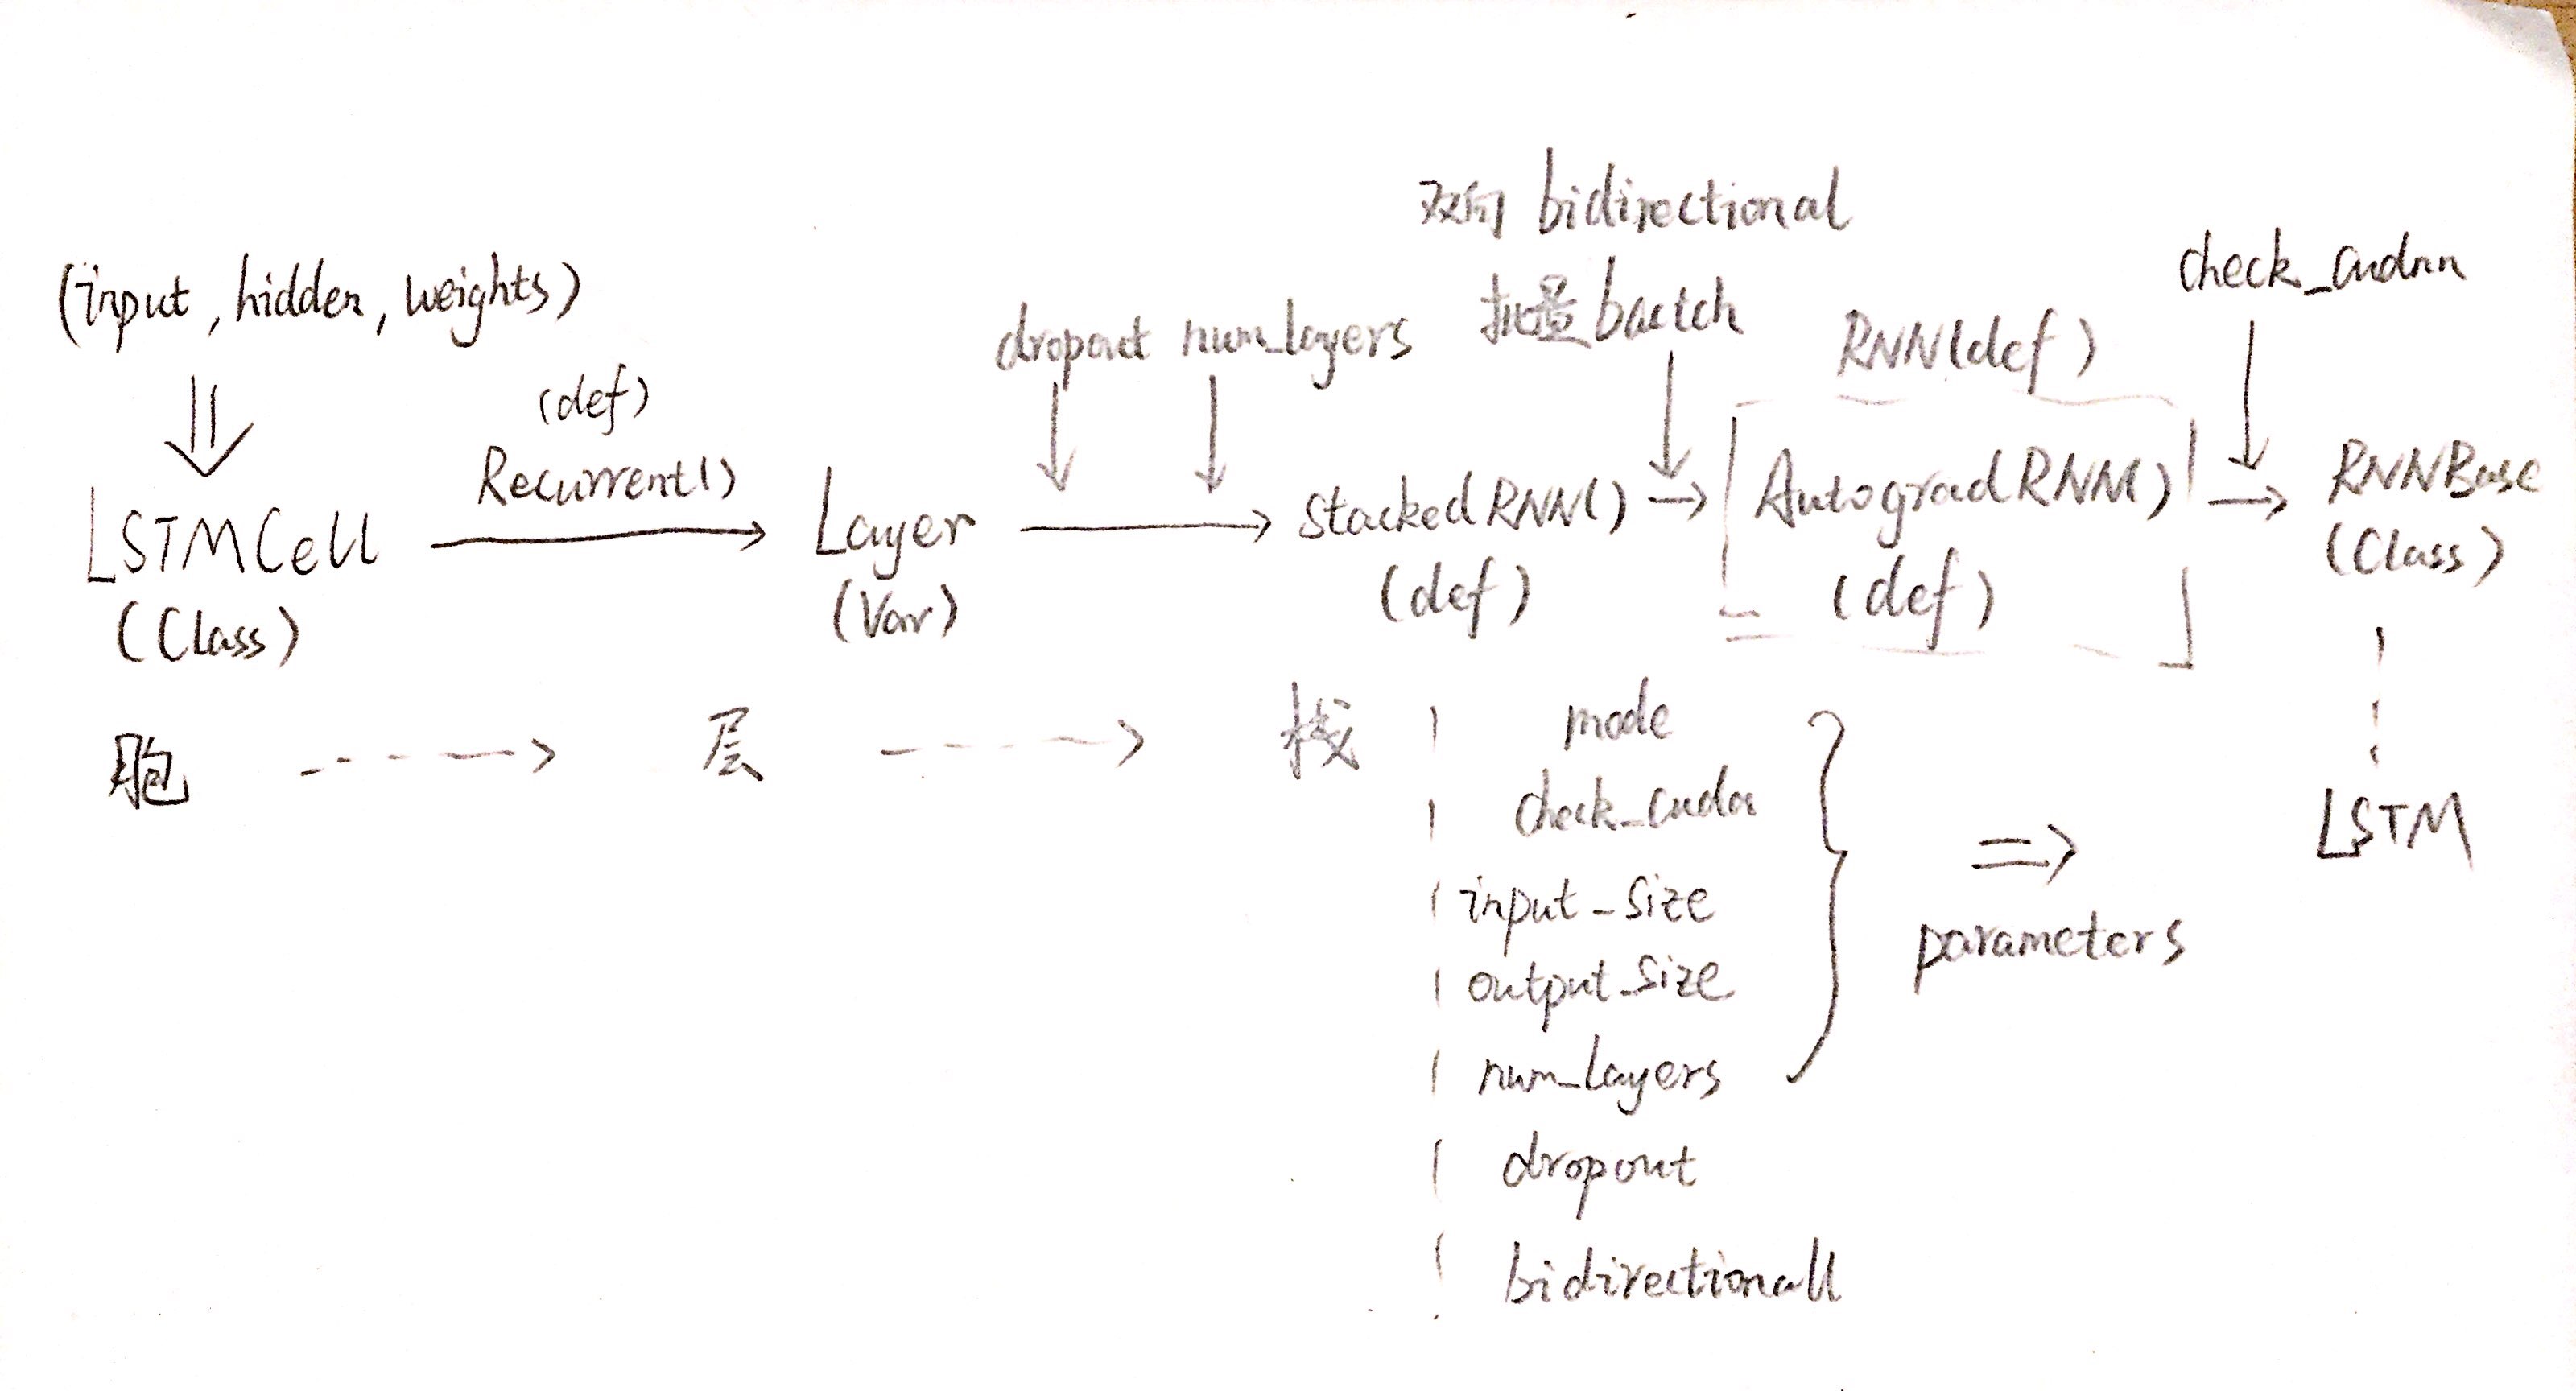 双向 bidirectional
批量 bactch
(input, hidden, weights)
dropout num_layers
check_cudnn
RNN(def)
(def)
Recurrent()
LSTMCell
(Class)
Layer
(Var)
StackedRNN()
(def)
AutogradRNN()
(def)
RNNBase
(Class)
胞
层
栈
mode
check_cudnn
input_size
output_size
num_layers
dropout
bidirectionall
parameters
LSTM